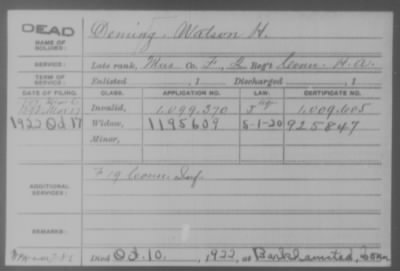 DEAD
NAME OF SOLDIER:
Deming, Watson H.
SERVICE:
Late rank, Mus Co. F, & Reg't Conn. H. A.
TERM OF SERVICE:
Enlisted , 1 Discharged , 1
DATE OF FILING. CLASS. APPLICATION NO. LAW. CERTIFICATE NO.
Invalid, 1,099,370 1,009,605
1922 Oct 17 Widow, 1195609 5-1-20 925847
Minor,
ADDITIONAL SERVICES:
F 19 Conn. Inf.
REMARKS:
Died Oct. 10, 1922, at Barkhamsted, Conn